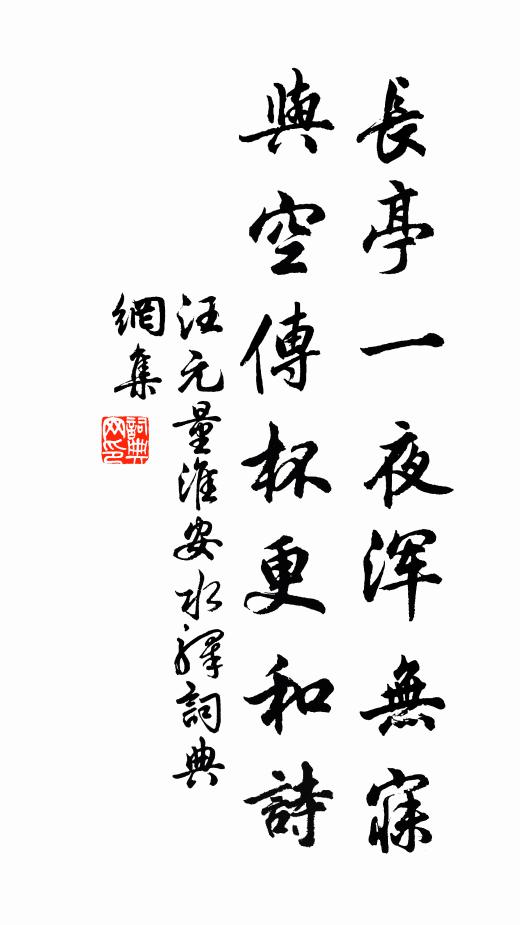 長亭一夜浑無寐
與空傳杯更和詩
汪元量淮安水驛詞典
網集
詞典
网印